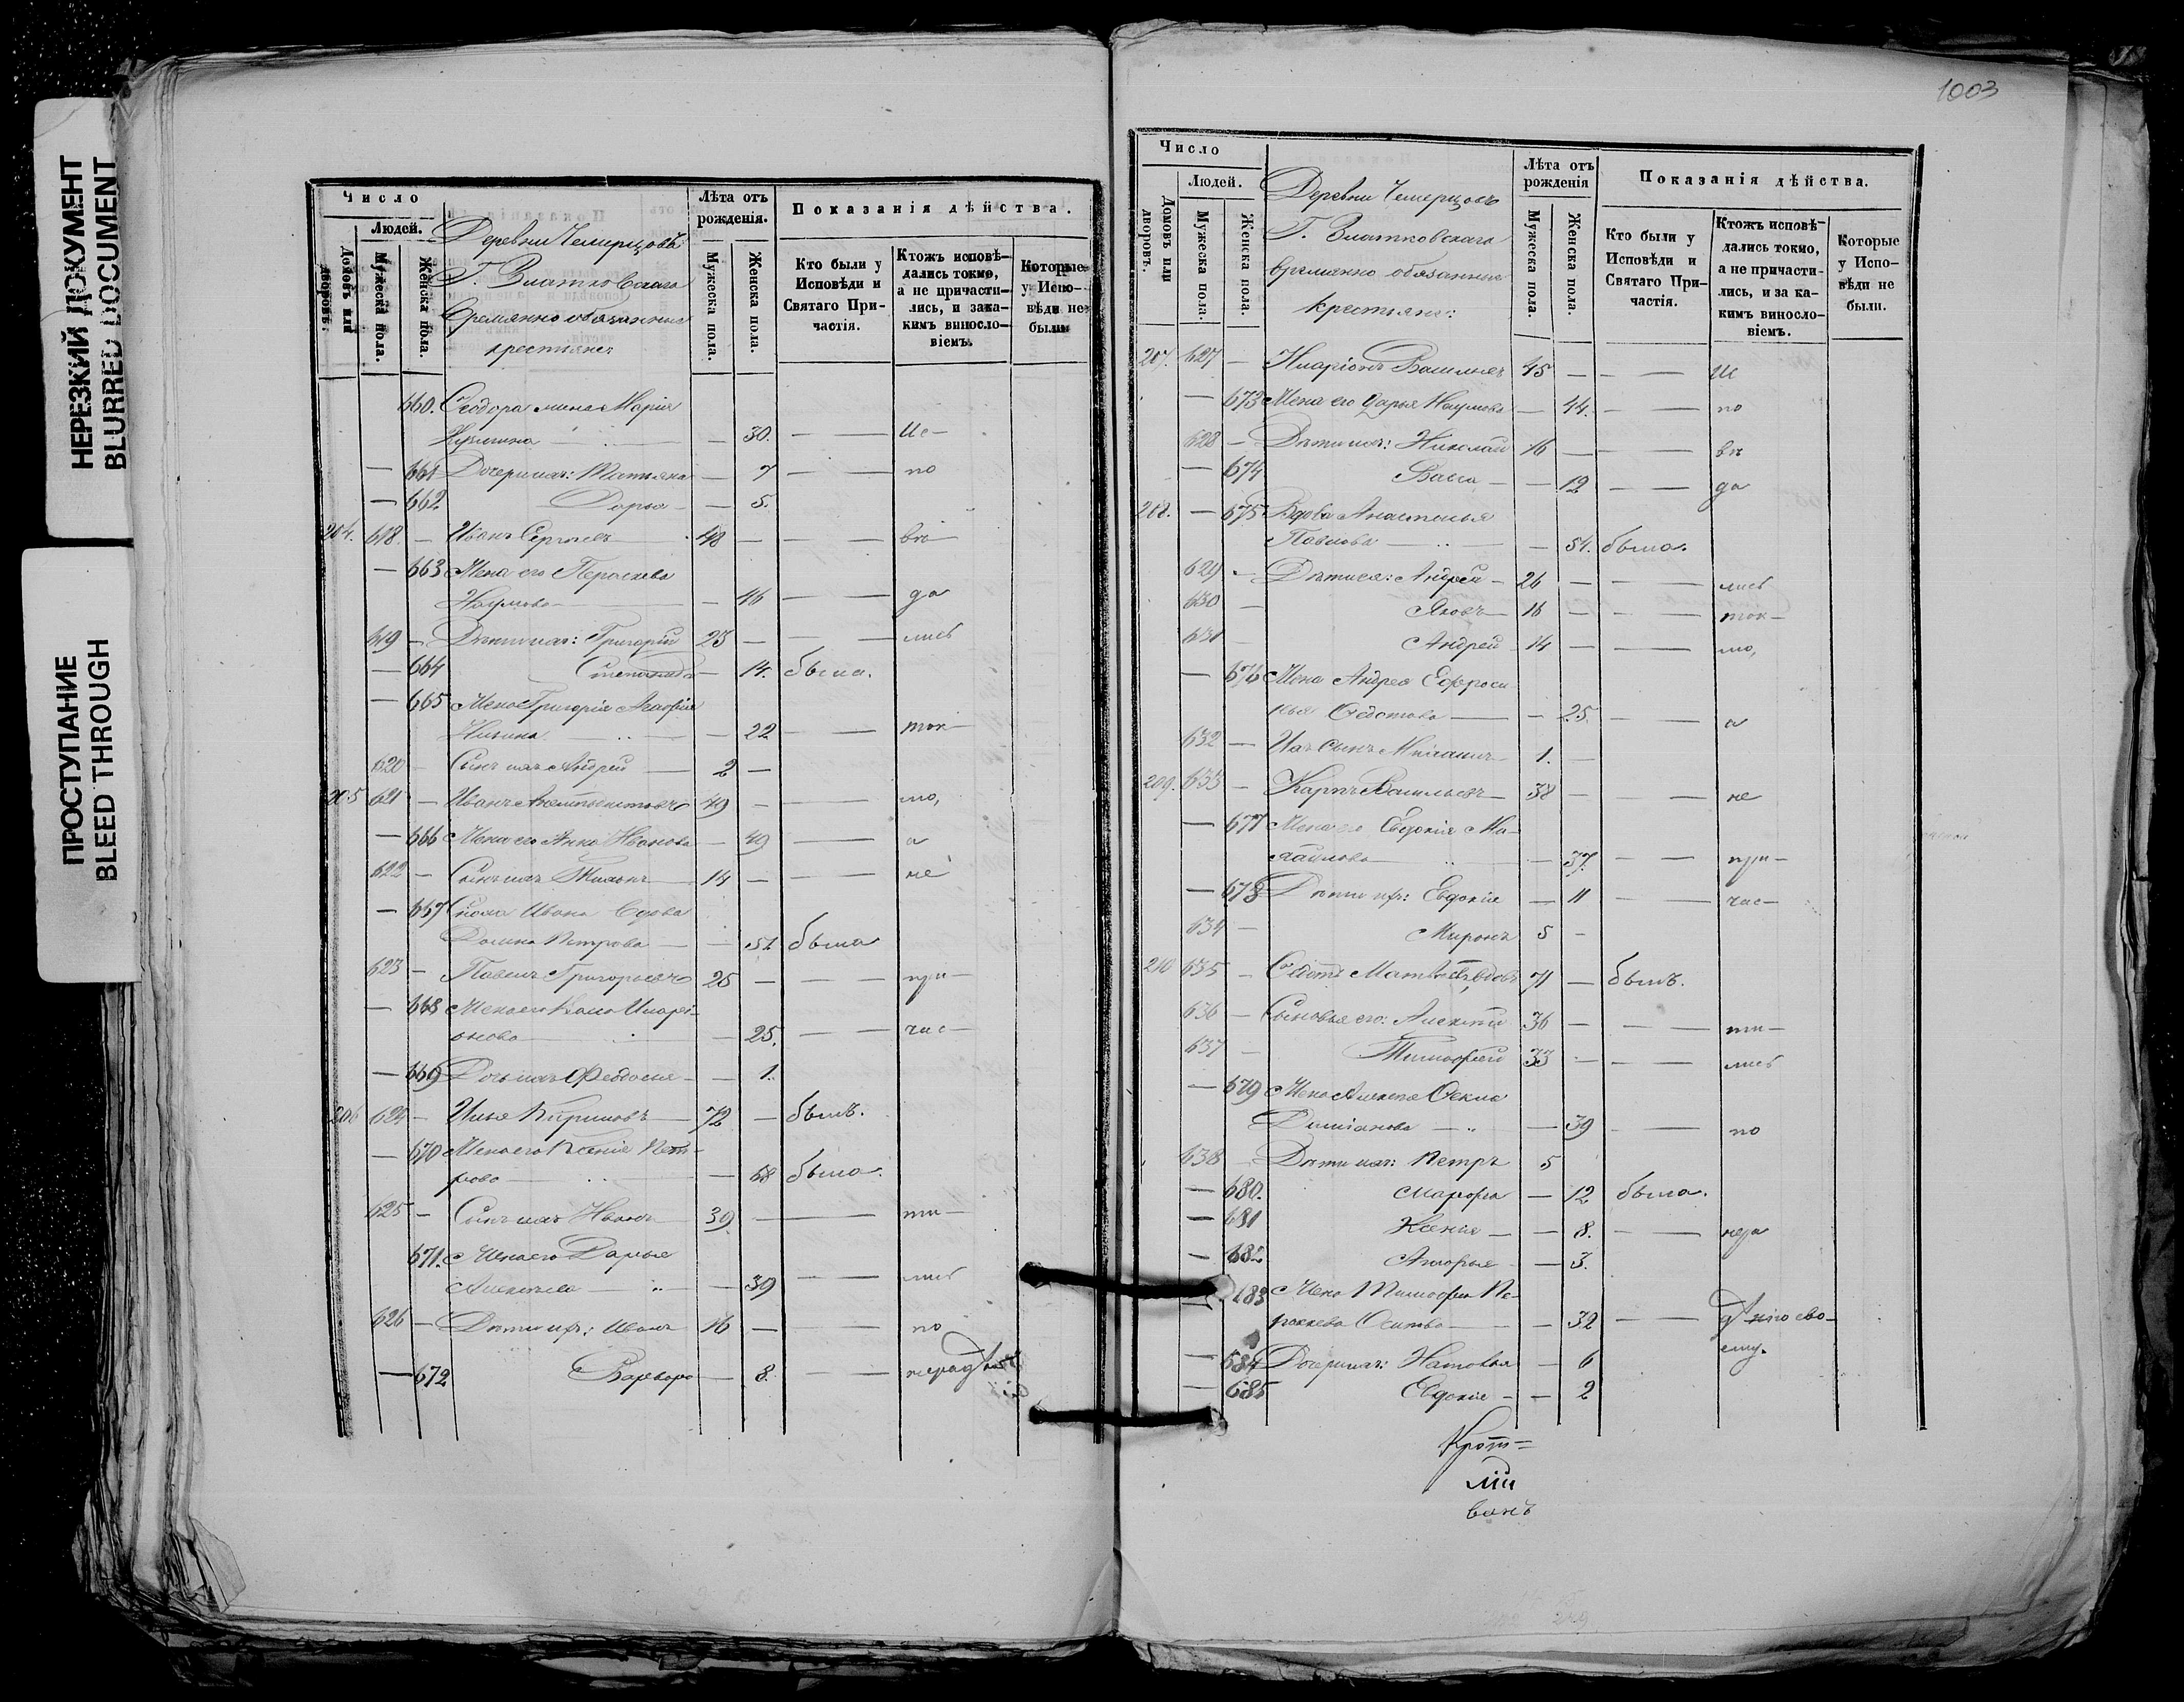 НЕРЕЗКИЙ ДОКУМЕНТ
BLURRED DOCUMENT
ПРОСТУПАНИЕ
BLEED THROUGH
Число
Людей.
Домовъ или дворовъ.
Мужеска пола.
Женска пола.
Деревни Чемерцовъ
Г. Златковскаго
временно обязанные
крестьяне:
Лѣта отъ рождения.
Мужеска пола.
Женска пола.
Показанія дѣйства.
Кто были у Исповѣди и Святаго Причастія.
Ктожъ исповѣдались токмо, а не причастились, и за какимъ винословіемъ.
Которые у Исповѣди не были
660. Феодора жина Марія
Кузмина — 30. — — Ис—
— 661 Дочери ихъ: Татіяна — 7 — — по
— 662 Дарья — — 5.
204. 618. — Иванъ Сергѣевъ 48 — — — вѣ—
— 663 Жена его Параскева
Наумова — — 46 — — да
619 — Дѣти ихъ: Григорій 23 — — — лись
— 664 Степанида — 14. была.
— 665 Жена Григорія Агафія
— 22 — — ток—
620 — Сынъ ихъ Андрей — 2 —
205 621 — Иванъ 49 — — — мо,
— 666 Жена его Анна Иванова — 49 — а
622 — Сынъ ихъ 14 — — — не
— 667 Ивана вдова
Петрова — — 51. была
623 — Павелъ Григорьевъ 25 — — — при—
— 668 Жена его Иларі-
онова — — 25. — — час—
— 669 Дочь ихъ Феодосія — — 1.
206 624 — Илья Кириловъ — 72 — былъ.
— 670 Жена его Ксенія Пет-
рова — — 68 была.
625 — Сынъ ихъ Иванъ 39 — — ти—
671. Жена его Дарья
Алексѣева — — 39 — — лись
626 — Дѣти ихъ: Иванъ 16 — — — по
— 672 Варвара — 8. — — нерадѣнію
1003
Число
Людей.
Домовъ или дворовъ.
Мужеска пола.
Женска пола.
Деревни Чемерцовъ
Г. Златковскаго
временно обязанные
крестьяне:
Лѣта отъ рождения
Мужеска пола.
Женска пола.
Показанія дѣйства.
Кто были у Исповѣди и Святаго Причастія.
Ктожъ исповѣдались токмо, а не причастились, и за какимъ винословіемъ.
Которые у Исповѣди не были.
207. 627 — Иларіонъ Васильевъ 45 — — — Ис
— 673 Жена его Дарья Наумова — 44. — — по
628 — Дѣти ихъ: Николай 16 — — — вѣ
— 674 Васса — — 12 — — да
208. — 675 Вдова Анастасья
Павлова — — 54. была.
629 — Дѣти ея: Андрей — 26 — — — лись
630 — Яковъ — 16 — — — ток—
631 — Андрей 14 — — мо,
— 676 Жена Андрея Ефроси
нья Федотова — — 25. — — а
632 — Ихъ сынъ 1. —
209. 633 — Карпъ Васильевъ — 38 — — — не
— 677 Жена его Евдокія Ми-
хайлова — — 37. — — при—
— 678 Дѣти ихъ: Евдокія — 11 — — час—
634 — Миронъ 5 —
210 635 — Федотъ Матвѣевъ, вдовъ 71 — былъ.
636 — Сыновья его: Алексѣй 36 — — — ти—
637 — Тимофей 33 — — — лись
— 679 Жена Алексѣя Фекла
Даміанова — — 39 — — по
638 — Дѣти ихъ: Петръ 5
— 680. Марфа — 12 была.
— 681 Ксенія — — 8. — — нера
— 682 Агафья — — 3.
— 683 Жена Тимофея Па-
раскева Осипова — — 32 — — дѣнію сво-
ему.
— 684 Дочери ихъ: Наталья — 6
— 685 Евдокія — — 2